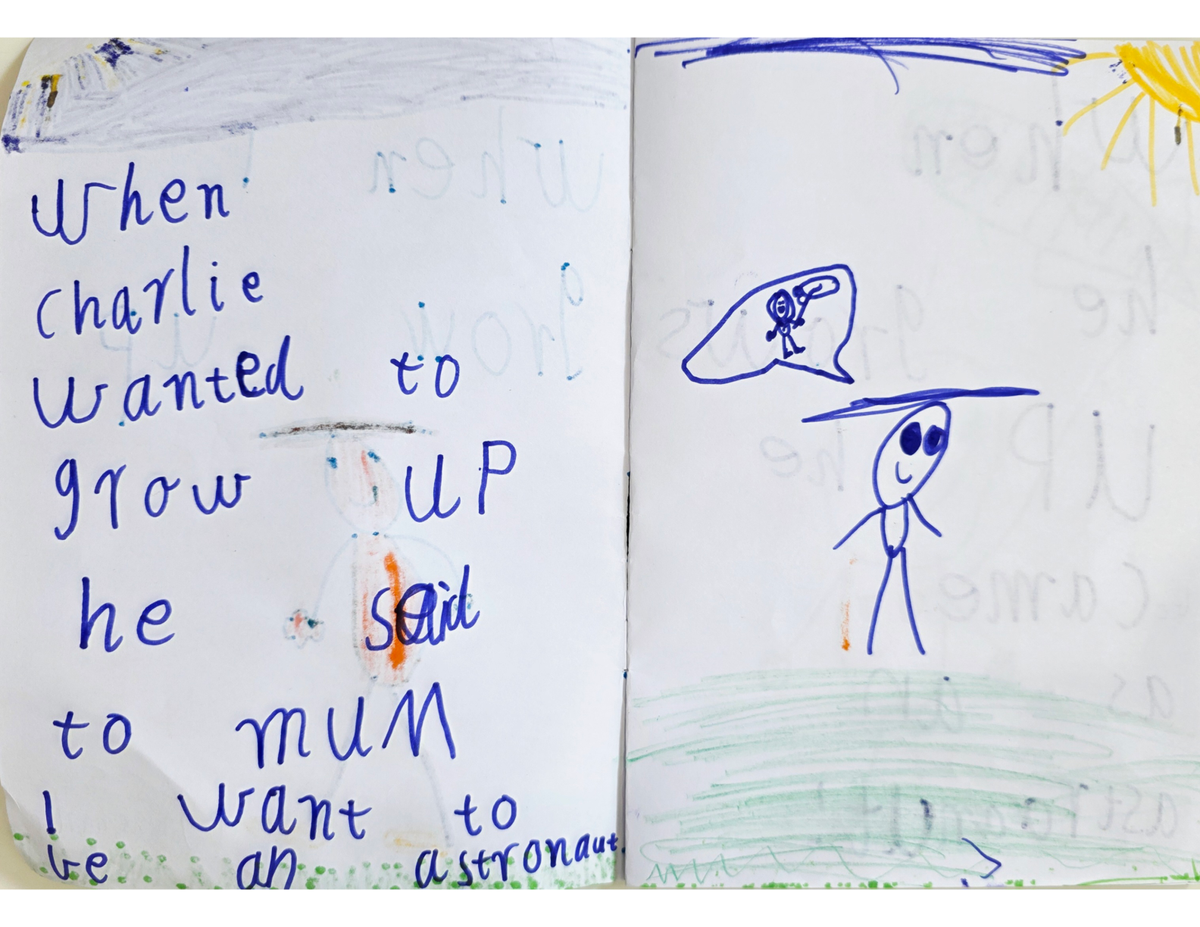 When
charlie
wanted to
grow UP
he said
to mum
I want to
be an astronaut.